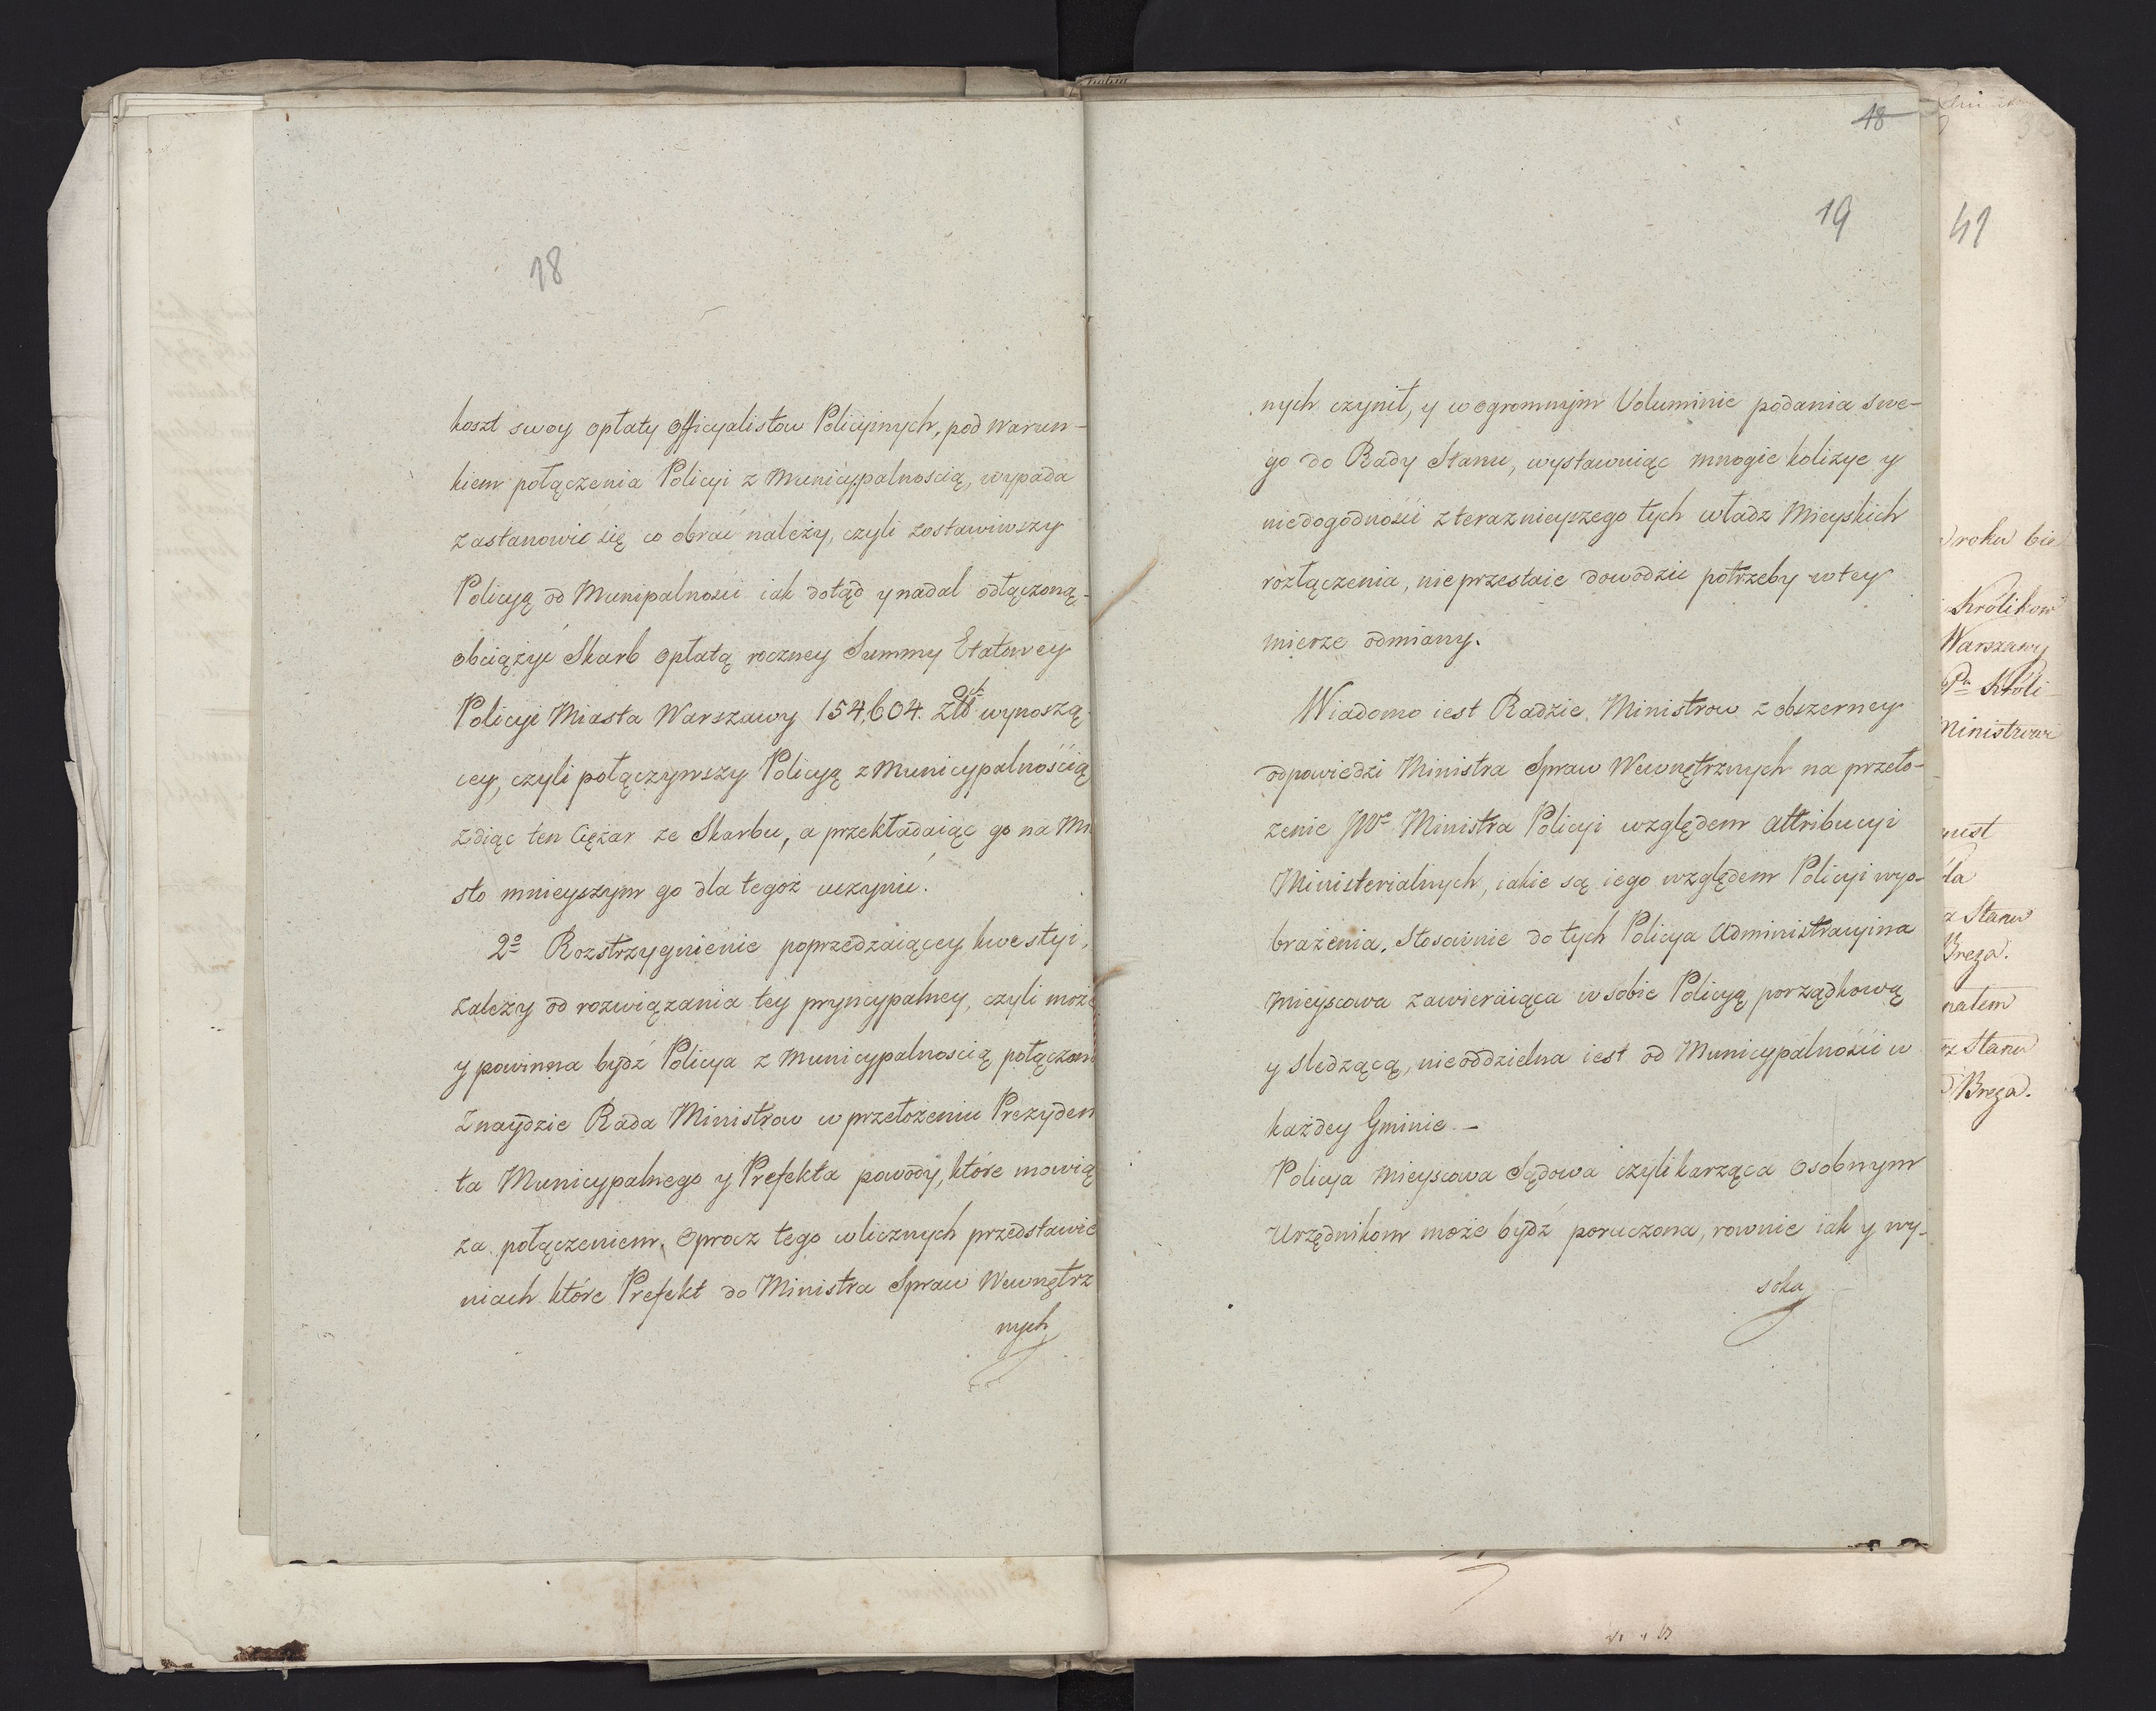 18
koszt swoy opłaty Officyalistow Policyinych, pod warun-
kiem połączenia Policyi z Municypalnoscią, wypada
zastanowić się co obrać należy, czyli zostawiwszy
Policyą od Munipalności iak dotąd y nadal odłączoną-
obciążyć Skarb opłatą roczney Summy Etatowey
Policyi Miasta Warszawy 154,604. Złt wynoszą-
cey, czyli połączywszy Policyą z Municypalnością
zdiąć ten Ciężar ze Skarbu, a przekładaiąc go na Mia
sto mnieyszym go dla tegoż uczynić.
2o Rozstrzygnienie poprzedzaiącey kwestyi,
zależy od rozwiązania tey pryncypalney, czyli może
y powinna bydź Policya z Municypalnoscią połączon
Znaydzie Rada Ministrow w przełożeniu Prezyden
ta Municypalnego y Prefekta powody, które mowią
za połączeniem, Oprocz tego w licznych przedstawie
niach które Prefekt do Ministra Spraw Wewnętrz
nych
18
19
nych czynił, y w ogromnym Voluminie podania swe-
go do Rady Stanu, wystawuiąc mnogie kolizye y
niedogodności z teraznieyszego tych władz Mieyskich
rozłączenia, nieprzestaie dowodzić potrzeby w tey
mierze odmiany.
Wiadomo iest Radzie Ministrow z obszerney
odpowiedzi Ministra Spraw Wewnętrznych na przeło-
żenie JWo Ministra Policyi względem attribucyi
Ministerialnych, iakie są iego względem Policyi wyo-
brażenia, Stosownie do tych Policya Administracyina
mieyscowa zawieraiąca w sobie Policyą porządkową
y sledzącą, nieoddzielna iest od Municypalności w
każdey Gminie. -
Policya mieyscowa Sądowa czyli karząca Osobnym
Urzędnikom może bydź poruczona, rownie iak y wy-
soka
41
roku bie
Królikow
Warszawy
Pa Króli-
Ministrow
nust
la
z Stanu
Breza.
nałem
rz Stanu
Breza.